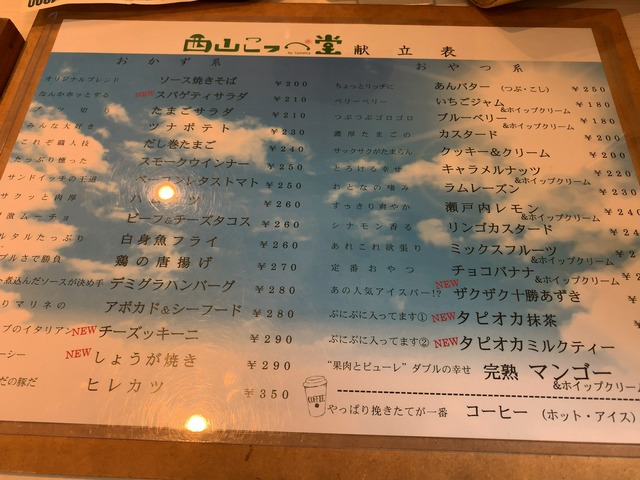 西山こっぺ堂 献立表
おかず系
オリジナルブレンド ソース焼きそば ¥200
なんかホッとする NEW スパゲティサラダ ¥210
切り たまごサラダ ¥210
みんな大好き ツナポテト ¥230
これぞ職人技 だし巻たまご ¥240
たっぷり燻った スモークウインナー ¥250
サンドイッチの王道 ベーコンレタストマト ¥250
サクッと肉厚 ハムカツ ¥260
激ムーチョ ビーフ&チーズタコス ¥260
タルタルたっぷり 白身魚フライ ¥260
プルさで勝負 鶏の唐揚げ ¥270
煮込んだソースが決め手 デミグラハンバーグ ¥280
りマリネの アボカド&シーフード ¥280
ブのイタリアン NEW チーズッキーニ ¥290
ーシー NEW しょうが焼き ¥290
だの豚だ ヒレカツ ¥350
おやつ系
ちょっとリッチに あんバター (つぶ・こし) ¥250
ベリーベリー いちごジャム &ホイップクリーム ¥180
つぶつぶゴロゴロ ブルーベリー &ホイップクリーム ¥180
濃厚たまごの カスタード ¥200
サックサクがたまらん クッキー&クリーム ¥200
とろける幸せ キャラメルナッツ &ホイップクリーム ¥220
おとなの嗜み ラムレーズン ¥230
すっきり爽やか 瀬戸内レモン &ホイップクリーム
シナモン香る リンゴカスタード
あれこれ欲張り ミックスフルーツ &ホイップクリーム
定番おやつ チョコバナナ &ホイップクリーム
あの人気アイスバー!? NEW ザクザク十勝あずき
ぷにぷに入ってます① NEW タピオカ抹茶
ぷにぷに入ってます② NEW タピオカミルクティー
"果肉とピューレ"ダブルの幸せ 完熟 マンゴー &ホイップクリーム
COFFEE やっぱり挽きたてが一番 コーヒー (ホット・アイス)